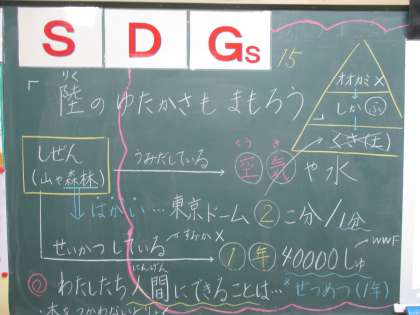 SDGs 15
「陸のゆたかさもまもろう」
りく
オオカミ×
しか ふ
くさ(土)
しぜん
(山や森林)
うみだしている
空気や水
くう き
ばっさい…東京ドーム②こ分/1分
せいかつしている
すみか×
①年40000しゅ
WWF
わたしたち人間にできることは…
にんげん
ぜつめつ(1年)
木をつかわないとり